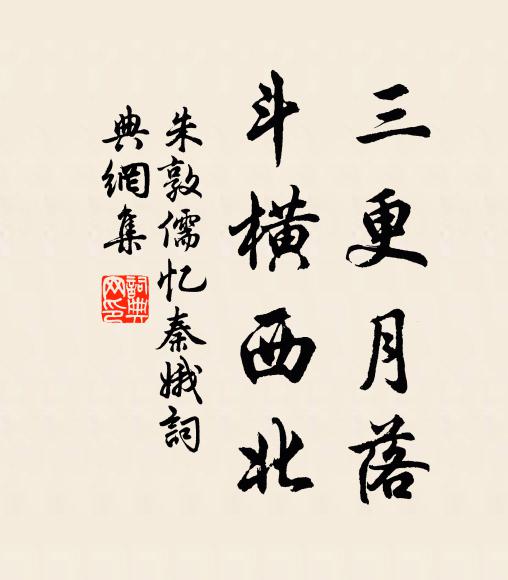 三更月落
斗橫西北
朱敦儒忆秦娥詞
典網集
詞典
网印